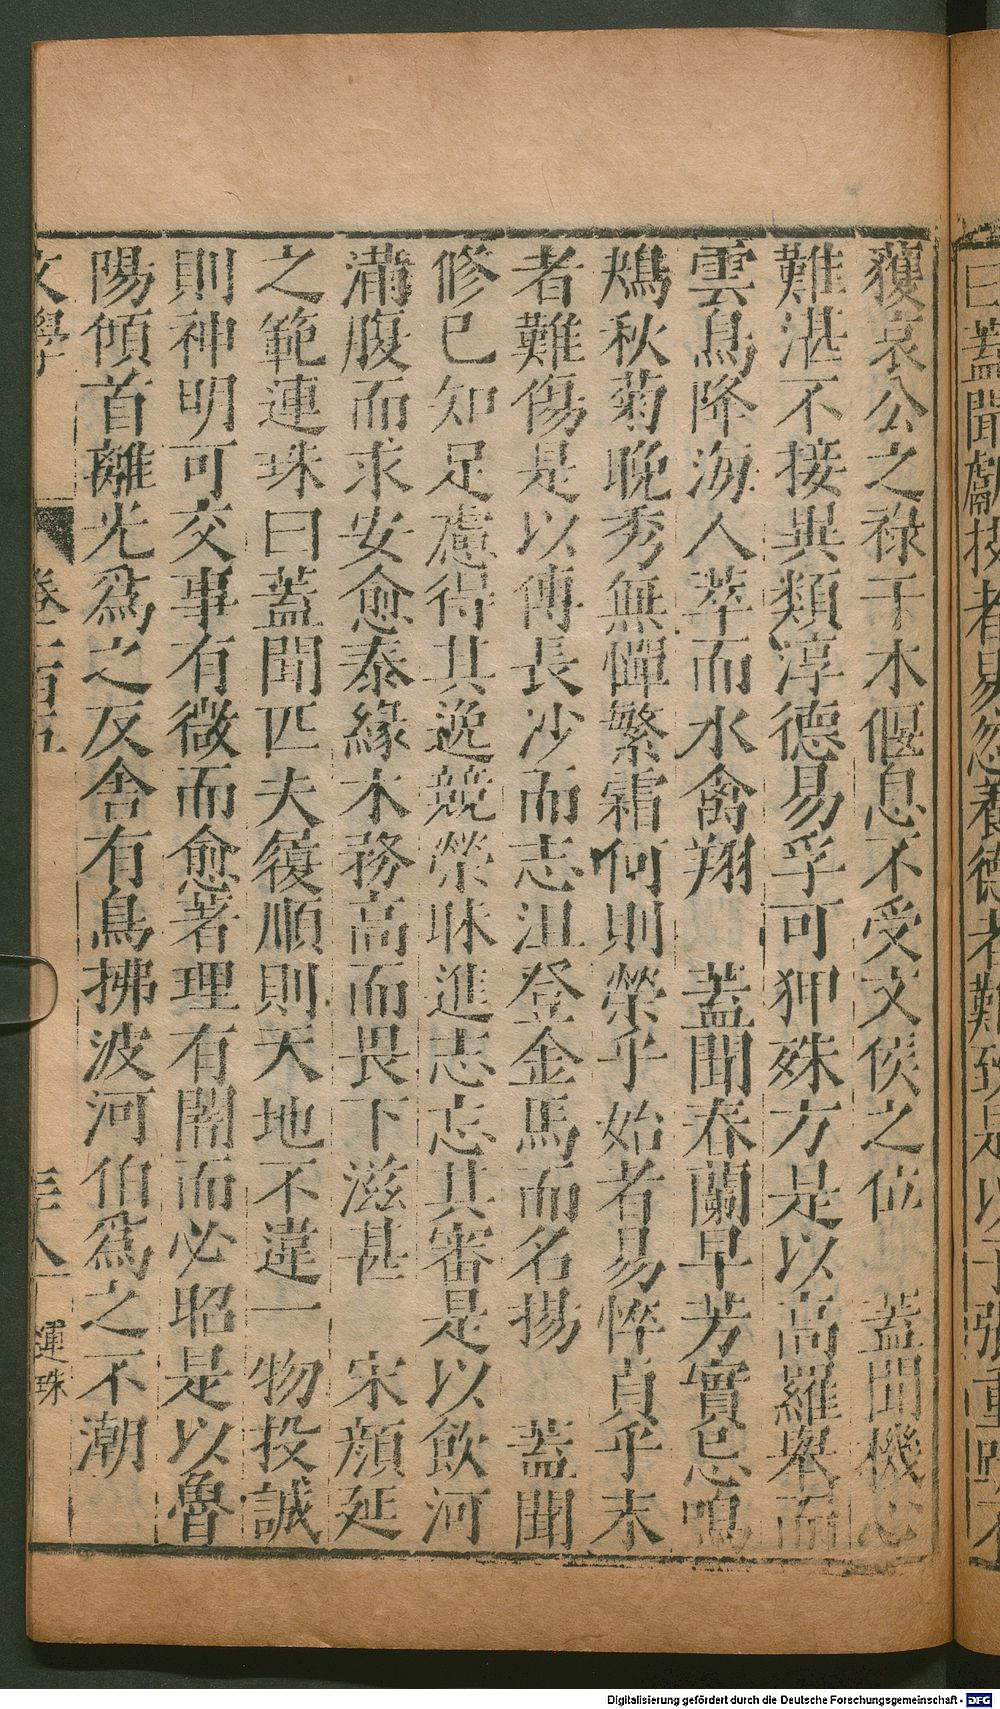 獲哀公之祿干木偃息不受文侯之位　蓋聞機心
難湛不接異類淳德易孚可狎殊方是以高羅舉而
雲鳥降海人萃而水禽翔　蓋聞春蘭早芳實忌鳴
鴂秋菊晚秀無憚繁霜何則榮乎始者易悴貞乎末
者難傷是以傅長沙而志沮登金馬而名揚　蓋聞
修已知足慮得其逸競榮昧進志忘其審是以飲河
滿腹而求安愈泰緣木務高而畏下滋甚　宋顏延
之範連珠曰蓋聞匹夫履順則天地不違一物投誠
則神明可交事有微而愈著理有闇而必昭是以魯
陽傾首離光爲之反舍有鳥拂波河伯爲之不潮
文學　卷二百五　三十八　連珠
曰蓋聞獻技者易忽養德者難致是以子張重
Digitalisierung gefördert durch die Deutsche Forschungsgemeinschaft - DFG